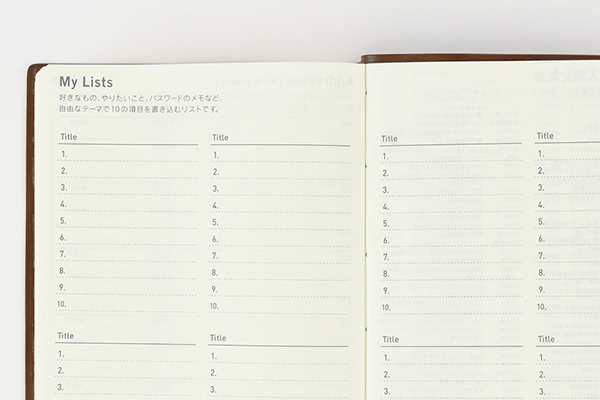 My Lists
好きなもの、やりたいこと、パスワードのメモなど、
自由なテーマで10の項目を書き込むリストです。
Title
1.
2.
3.
4.
5.
6.
7.
8.
9.
10.
Title
1.
2.
3.
4.
5.
6.
7.
8.
9.
10.
Title
1.
2.
3.
Title
1.
2.
3.
Title
1.
2.
3.
4.
5.
6.
7.
8.
9.
10.
Title
1.
2.
3.
4.
5.
6.
7.
8.
9.
10.
Title
1.
2.
3.
Title
1.
2.
3.